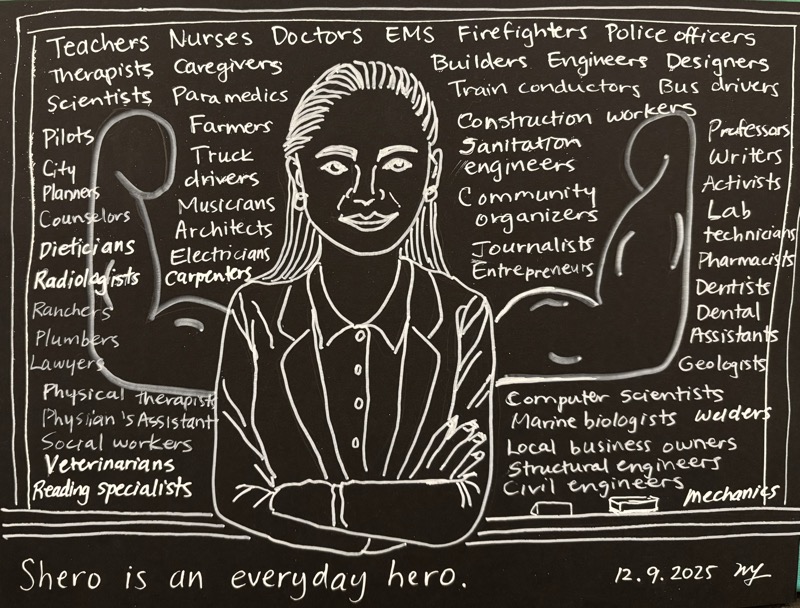 Teachers Nurses Doctors EMS Firefighters Police officers
Therapists Caregivers Builders Engineers Designers
Scientists Paramedics Train conductors Bus drivers
Pilots
City
Planners
Counselors
Dieticians
Radiologists
Ranchers
Plumbers
Lawyers
Physical therapists
Physian's Assistant
Social workers
Veterinarians
Reading specialists
Farmers
Truck
drivers
Musicians
Architects
Electricians
Carpenters
Construction workers
Sanitation
engineers
Community
organizers
Journalists
Entrepreneurs
Professors
Writers
Activists
Lab
technicians
Pharmacists
Dentists
Dental
Assistants
Geologists
Computer scientists
Marine biologists welders
Local business owners
Structural engineers
Civil engineers
mechanics
Shero is an everyday hero.
12.9.2025